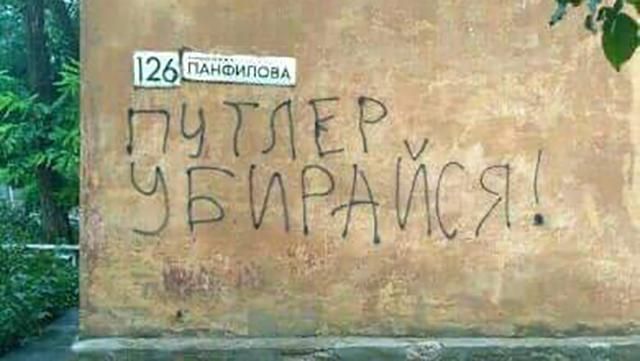 126 ПАНФИЛОВА
ПУТЛЕР
УБИРАЙСЯ!